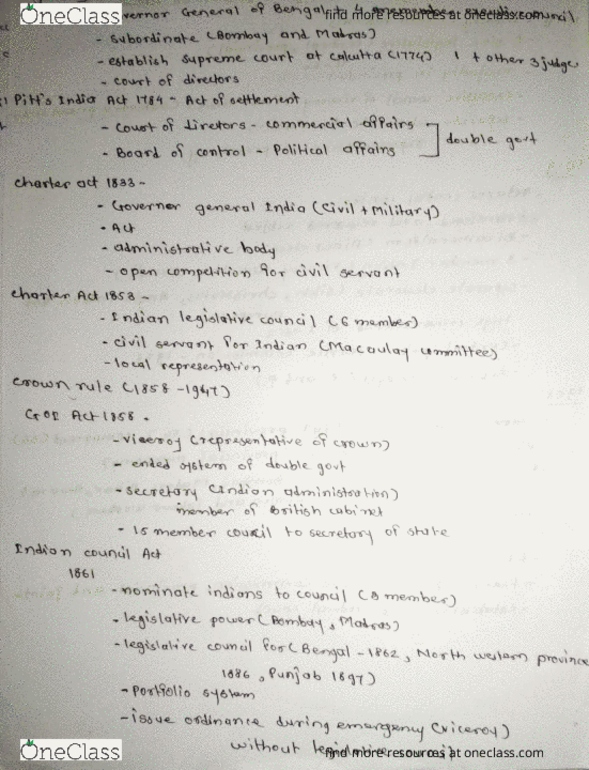 OneClass
vernor General of Bengal + 4 find more resources at oneclass.com
- subordinate (Bombay and Madras)
- establish supreme court at calcutta (1774) 1 + other 3 judge
- court of directors
Pitt's India Act 1784 - Act of settlement
- court of diretors - commercial affairs
- Board of control - Political affairs
double govt
charter act 1833 -
- Governor general India (civil + Military)
- Act
- administrative body
- open competition for civil servant
charter Act 1853 -
- Indian legislative council (6 member)
- civil servant for Indian (Macaulay committee)
- local representation
Crown rule (1858 - 1947)
GOI Act 1858 -
- viceroy (representative of crown)
- ended system of double govt
- secretary (Indian administration)
member of British cabinet
- 15 member council to secretary of state
Indian council Act
1861
- nominate indians to council (8 member)
- legislative power (Bombay, Madras)
- legislative council for (Bengal - 1862, North western province
1886, Punjab 1897)
- Portfolio system
- issue ordinance during emergency (viceroy)
without legislative council
OneClass
find more resources at oneclass.com